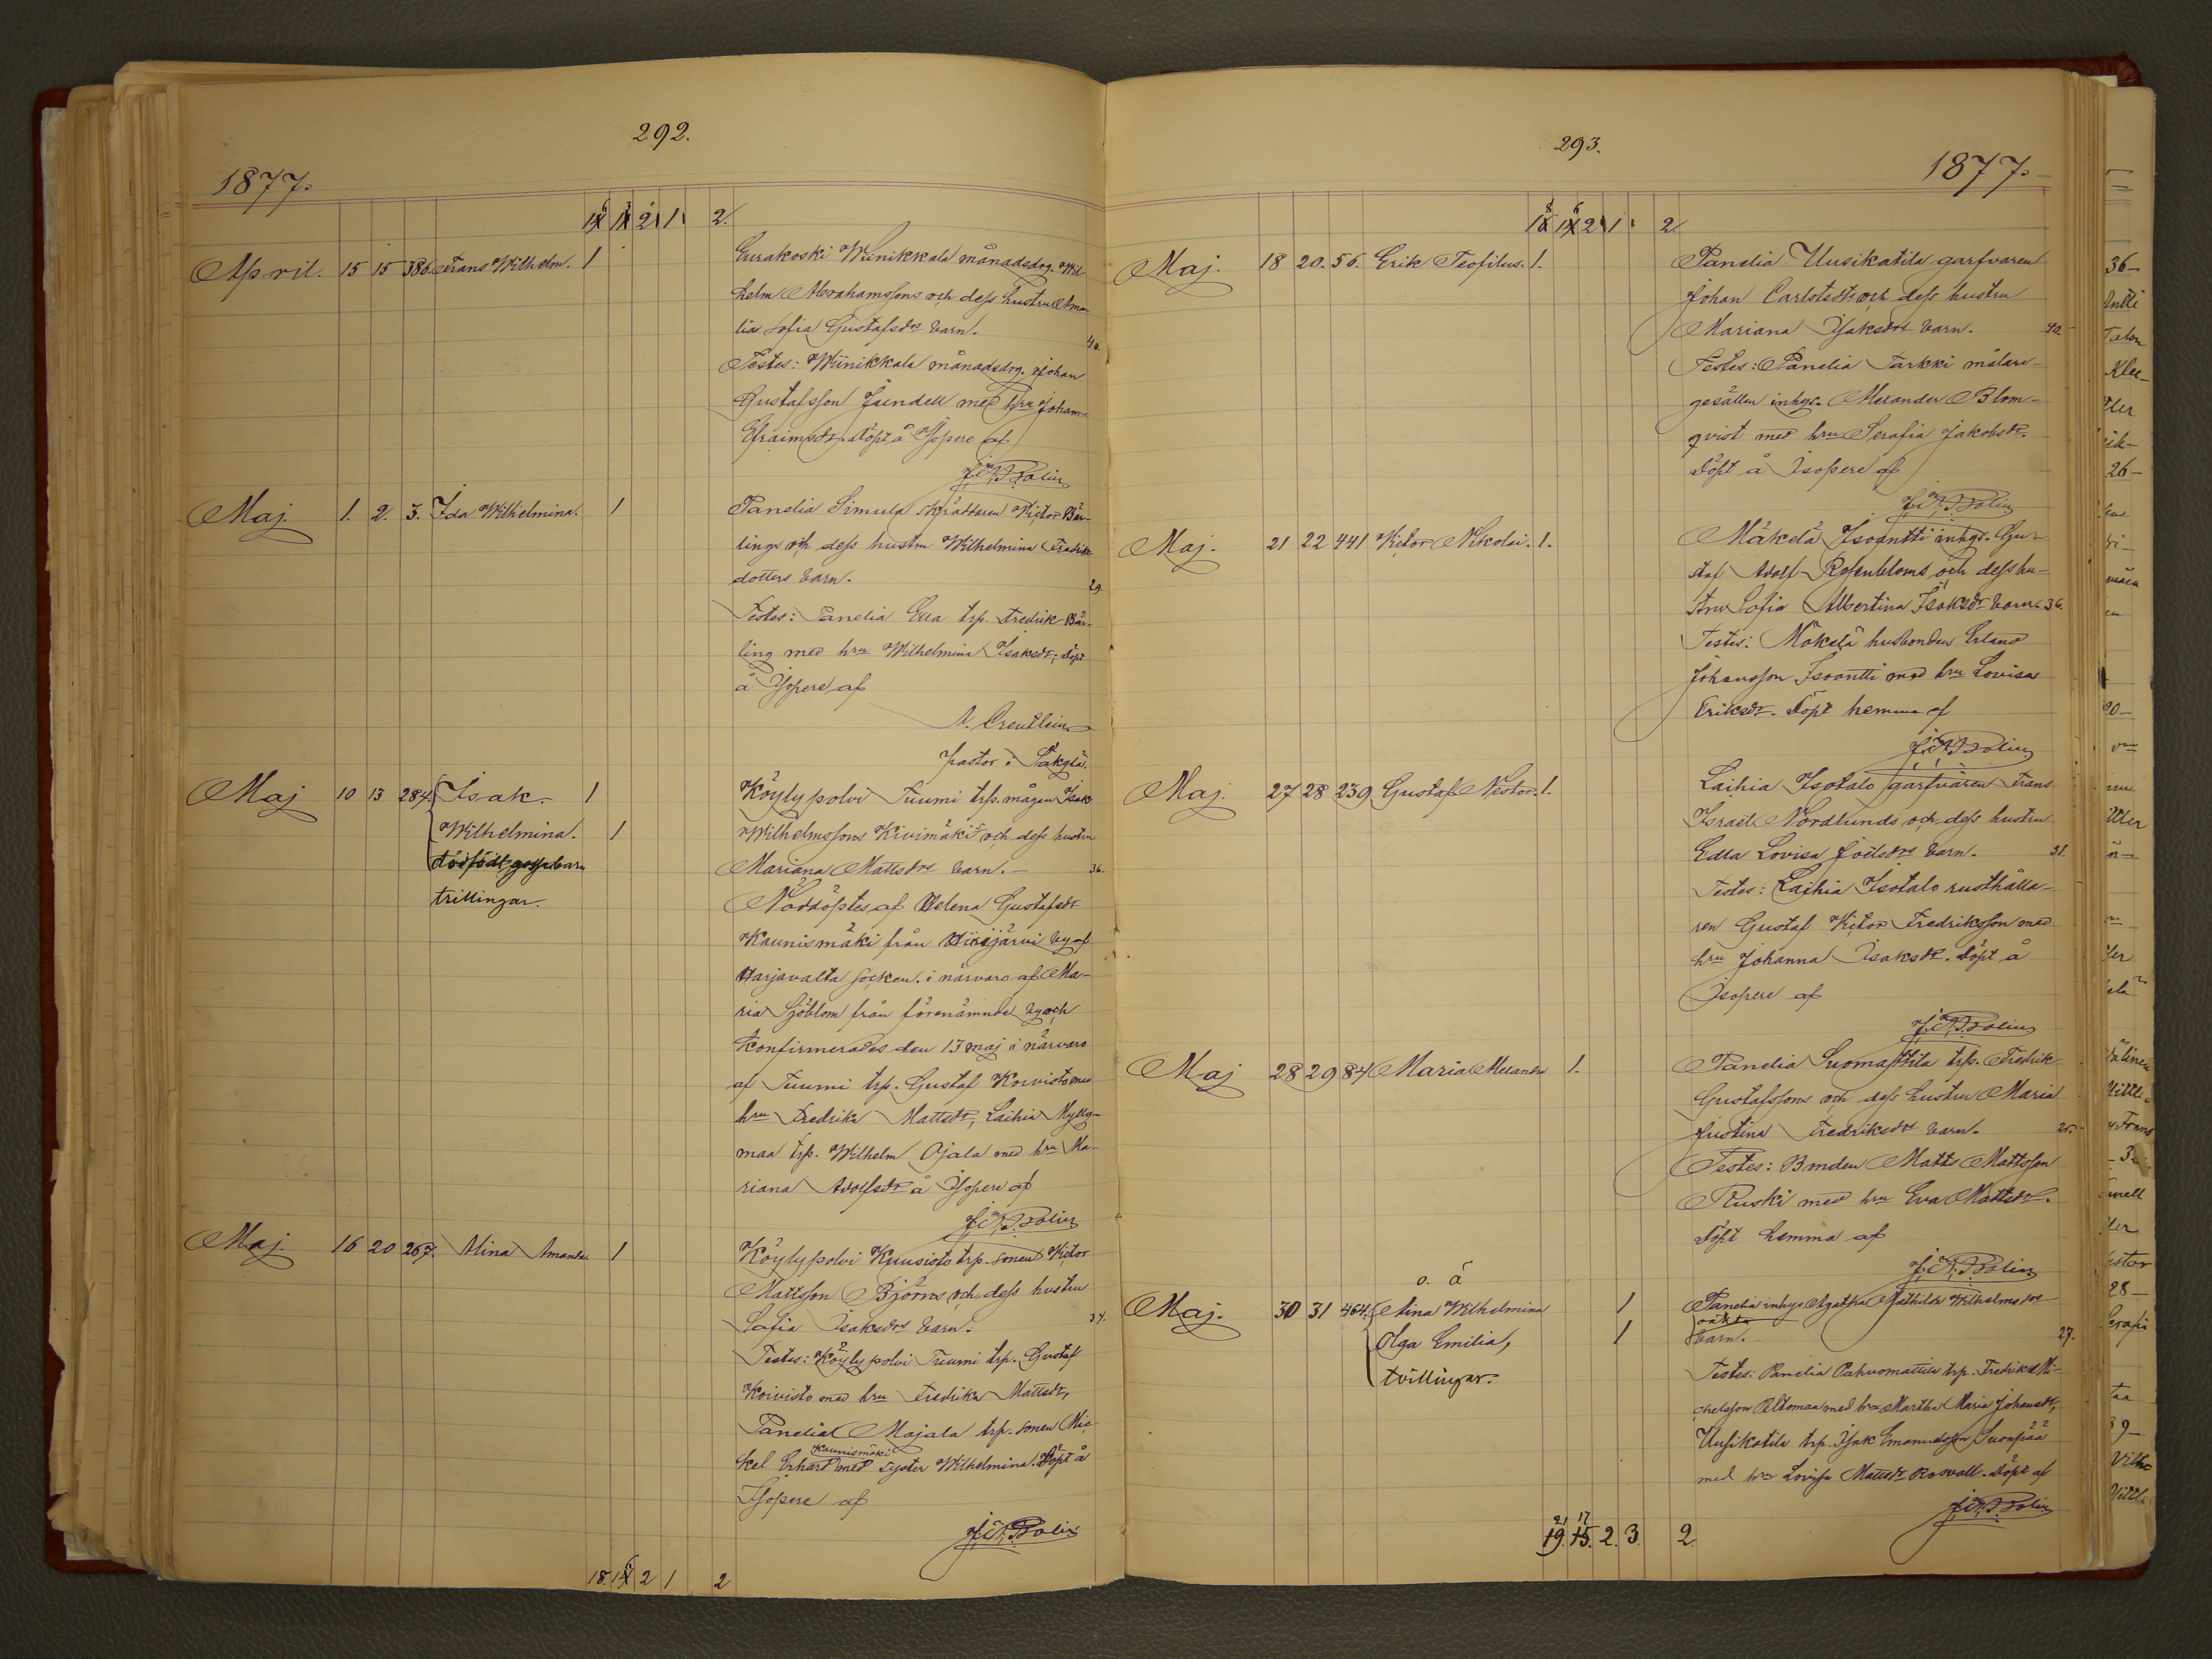 292.
1877.
1 2 1 2.
April. 15 15 386. Frans Wilhelm. 1 Eurakoski Wiinikkala månadsdrg. Wil-
helm Abrahamssons och dess hustru Ama-
lia Sofia Gustafsdrs barn. 40.
Testes: Wiinikkala månadsdrg. Johan
Gustafsson Jundell med hru Johanna
Efraimsdr. Döpt å Isopere af
J. A. Bolin
Maj. 1. 2. 3. Ida Wilhelmina. 1 Panelia Simula skräddaren Victor Bär-
lings och dess hustru Wilhelmina Fredriks
dotters barn. 29.
Testes: Panelia Eura trp. Fredrik Bär-
ling med hru Wilhelmina Isaksdr; döpt
å Isopere af
N. Creutlein
pastor i Säkylä.
Maj 10 13 284. Isak. 1 Köylypolvi Tuumi trp. mågen Isak
Wilhelmina. 1 Wilhelmssons Kivimäki och dess hustru
dödfödt gossebarn Mariana Mattsdrs barn. 36.
trillingar. Nöddöptes af Helena Gustafsdr
Kaunismäki från Hiirijärvi by af
Harjavalta socken i närvaro af Ma-
ria Sjöblom från förenämnde by och
Konfirmerades den 13 maj i närvaro
af Tuumi trp. Gustaf Koivisto med
hru Fredrika Mattsdr, Laihia Mylly-
maa trp. Wilhelm Ojala med hru Ma-
riana Adolfsdr å Isopere af
J. A. Bolin
Maj. 16 20 267. Alina Amanda. 1 Köylypolvi Kuusisto trp. sonen Victor
Mattsson Björns och dess hustru
Sofia Isaksdrs barn. 34.
Testes: Köylypolvi Tuumi trp. Gustaf
Koivisto med hru Fredrika Mattsdr,
Panelia Majala trp. sonen Mic-
Kaunismäki
kel Erhard med syster Wilhelmina. Döpt å
Isopere af
J. A. Bolin
18. 2 1 2
293.
1877.
2 1 2
Maj. 18 20. 56. Erik Teofilus. 1. Panelia Uusikatila garfvaren
Johan Carlstedts och dess hustru
Mariana Isaksdrs barn. 40
Testes: Panelia Tarkki målare-
gesällen inhys. Alexander Blom-
qvist med hru Serafia Jakobsdr.
Döpt å Isopere af
J. A. Bolin
Maj. 21 22 441 Victor Nikolai. 1. Mäkelä Isoantti inhys. Gu-
staf Adolf Rosenbloms och dess hu-
stru Sofia Albertina Isaksdrs barn. 36.
Testes: Mäkelä husbonden Erland
Johansson Isoantti med hru Lovisa
Eriksdr. Döpt hemma af
J. A. Bolin
Maj. 27 28 239 Gustaf Nestor. 1. Laihia Isotalo garfvaren Frans
Israel Nordlunds och dess hustru
Edla Lovisa Joelsdrs barn. 31.
Testes: Laihia Isotalo rusthålla-
ren Gustaf Victor Fredriksson med
hru Johanna Isaksdr. Döpt å
Isopere af
J. A. Bolin
Maj 28 29 84 Maria Alexandra 1. Panelia Suomattila trp. Fredrik
Gustafssons och dess hustru Maria
Justina Fredriksdrs barn. 25.
Testes: Bonden Matts Mattsson
Ruski med hru Eva Mattsdr.
Döpt hemma af
J. A. Bolin
o. ä
Maj. 30 31 464. Aina Wilhelmina 1 Panelia inhys Agatha Mathilda Wilhelmsdrs
oäkta
Olga Emilia, 1 barn. 27.
tvillingar. Testes: Panelia Pahvomattila trp. Fredrik Mi-
chelsson Peltomaa med hru Martha Maria Johansdr,
Uusikatila trp. Isak Emanuelsson Suonpää
med hru Lovisa Mattsdr Rosvall. Döpt af
J. A. Bolin
21 17
19. 15. 2. 3. 2.